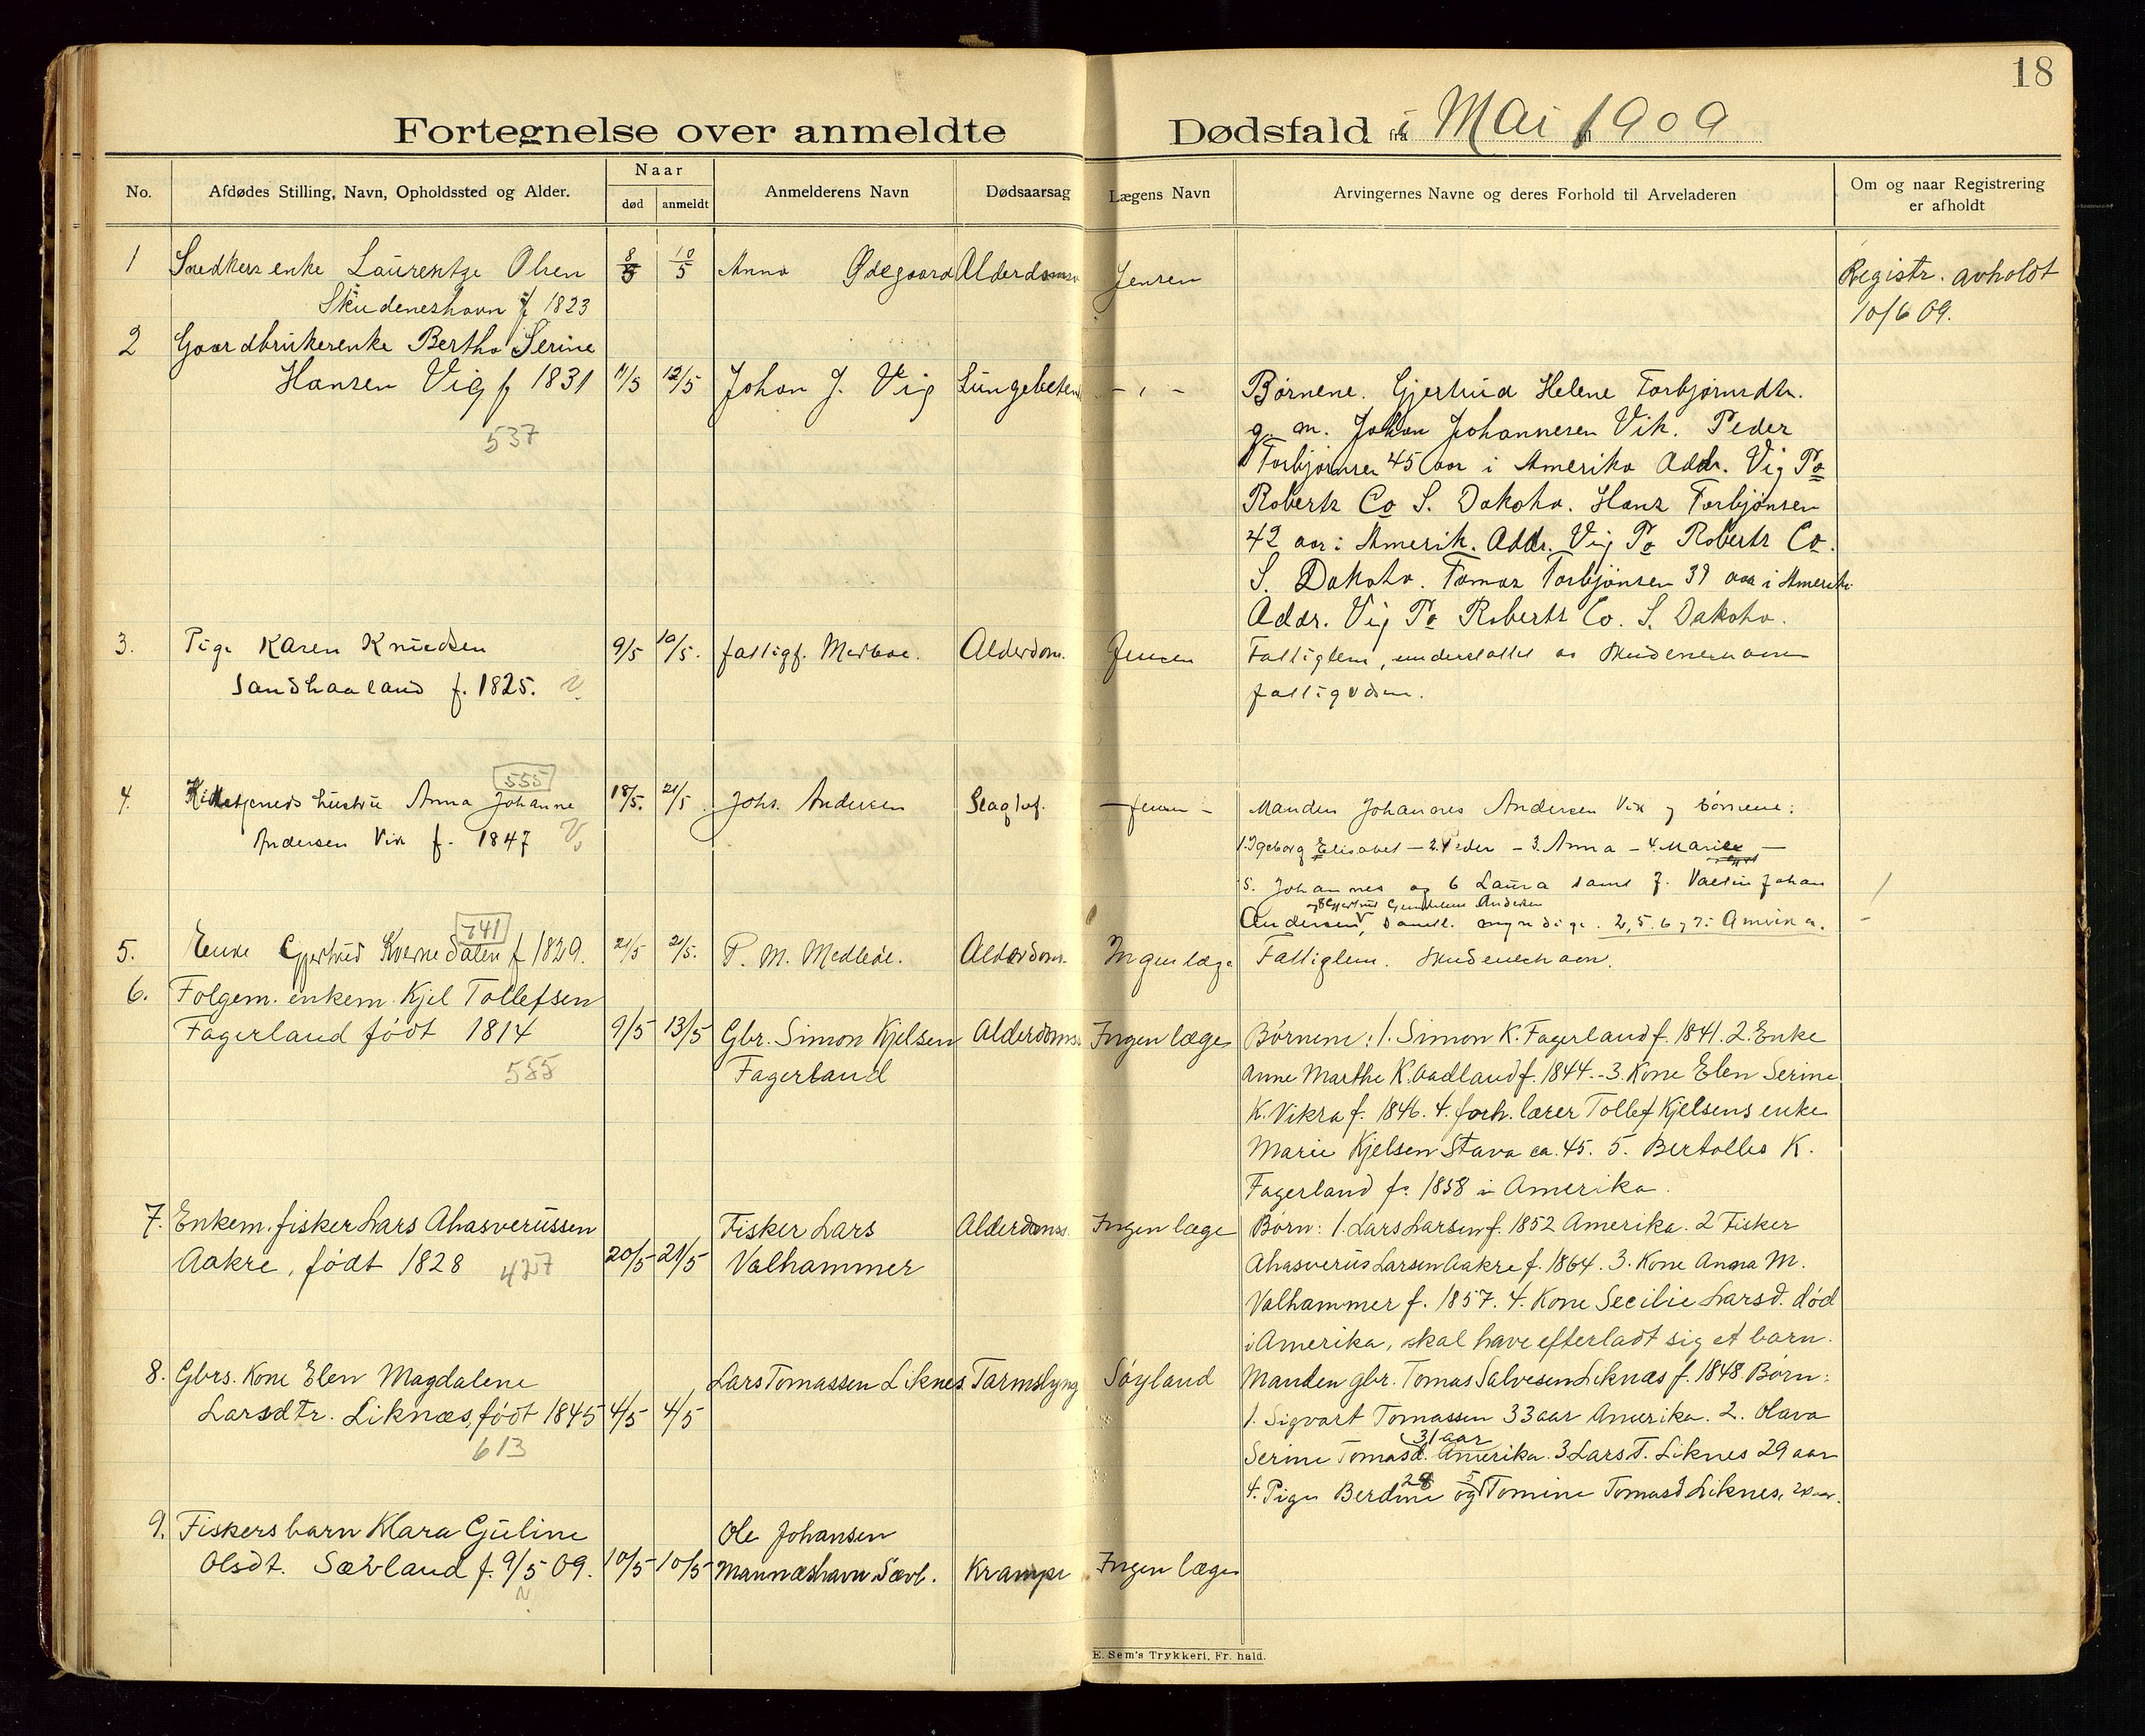 18
Fortegnelse over anmeldte Dødsfald i Mai 1909
No. Afdødes Stilling, Navn, Opholdssted og Alder. Naar død anmeldt Anmelderens Navn Dødsaarsag Lægens Navn Arvingernes Navne og deres Forhold til Arveladeren Om og naar Registrering er afholdt
1 Snedkers enke Laurentze Olsen 8/5 10/5 Anna Ødegaard Alderdoms Jensen Registr. avholdt
Skudeneshavn f 1823 10/6 09.
2 Gaardbrukerenke Bertha Serine
Hansen Vig f 1831 11/5 12/5 Johan J. Vig Lungebeten - " - Børnene. Gjertrud Helene Torbjørnsdtr.
537 g. m. Johan Johannesen Vik. Peder
Torbjørnsen 45 aar i Amerika Addr. Vig Po
Roberts Co S. Dakota. Hans Torbjønsen
42 aar i Amerik. Addr. Vig Po Roberts Co.
S. Dakota. Tomas Torbjønsen 39 aar i Amerika
Addr. Vig Po Roberts Co. S. Dakota.
3. Pige Karen Knudsen 9/5 10/5. fattigf. Medbøe. Alderdom. Jensen Fattiglem, understøttet av Skudeneshavn
Sandhaaland f. 1825. V. fattigvæsen.
555
4. Kirketjeners hustru Anna Johanne 18/5. 21/5 Johs. Andersen Slagtilf. - Jensen - Manden Johannes Andersen Vik og børnene:
Andersen Vik f. 1847 V. 1. Igeborg Elisabet - 2. Peder - 3. Anna - 4. Marie -
5. Johannes og 6 Laura samt 7. Valtin Johan
og 8 Gjertrud Andersen
Andersen, samtl. myndige. 2, 5. 6 og 7 i Amerika.
741
5. Enke Gjertrud Kvernedalen f 1829. 21/5 21/5. P. M. Medbøe. Alderdom. Ingen læge Fattiglem. Skudeneshavn.
6. Folgem. enkem. Kjel Tollefsen
Fagerland født 1814 9/5 13/5 Gbr. Simon Kjelsen Alderdoms. Ingen læge Børnene: 1. Simon K. Fagerland f. 1841. 2. Enke
555 Fagerland Anne Marthe K. Aadland f. 1844. - 3. Kone Elen Serine
K. Vikra f. 1846. 4. forh. lærer Tollef Kjelsens enke
Marie Kjelsen Stava ca. 45. 5. Bertolles K.
Fagerland f. 1858 i Amerika.
7. Enkem. fisker Lars Ahasverussen Fisker Lars Alderdomss. Ingen læge Børn: 1. Lars Larsen f. 1852 Amerika. 2 Fisker
Aakre, født 1828 427 20/5 21/5 Valhammer Ahasverus Larsen Aakre f. 1864. 3. Kone Anna M.
Valhammer f. 1857. 4. Kone Secilie Larsd. død
i Amerika, skal have efterladt sig et barn.
8. Gbrs. Kone Elen Magdalene Lars Tomassen Liknes. Tarmslyng Søyland Manden gbr. Tomas Salvesen Liknæs f. 1848. Børn:
Larsdtr. Liknæs, født 1845 4/5 4/5 1. Sigvart Tomassen 33 aar Amerika. 2. Olava
613 31 aar
Serine Tomasd. Amerika. 3 Lars T. Liknes 29 aar
28 5
4. Pige Berdine og Tomine Tomasd Liknes,
9. Fiskers barn Klara Guline Ole Johansen
Olsdt. Sævland f. 9/5 09. 10/5 10/5 Mannæshavn Sævl. Krampe Ingen læge
N
E. Sem's Trykkeri, Fr. hald.